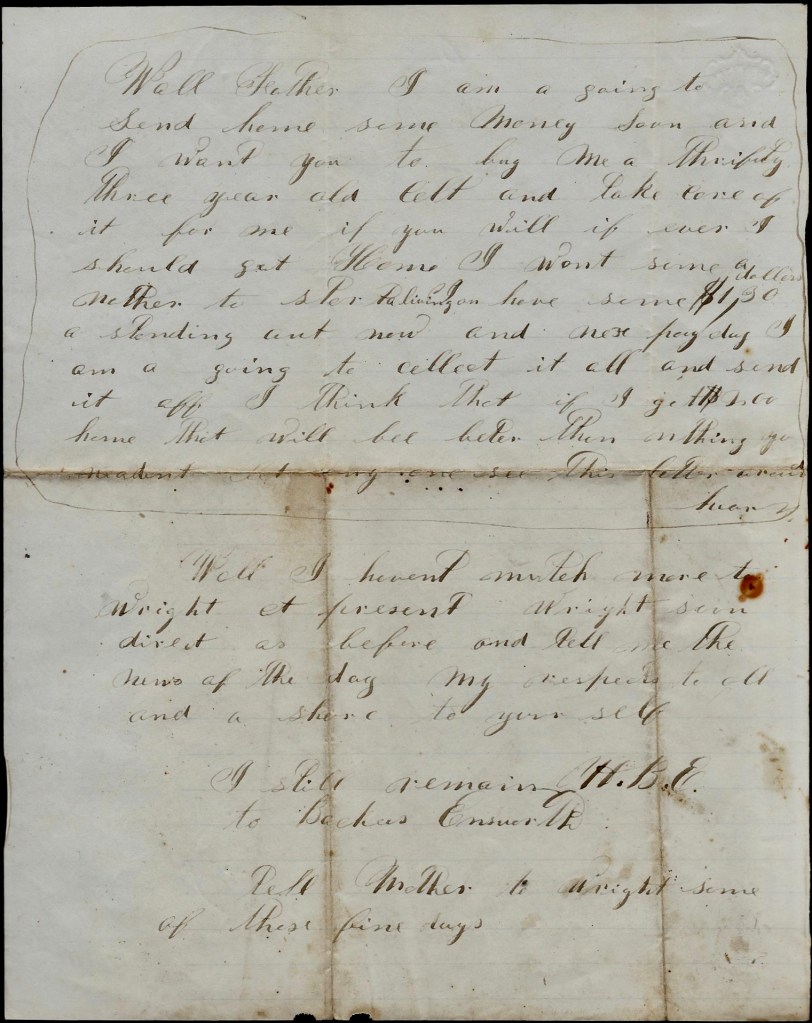 Wall Father I am a going to
Send home some Money Soon and
I want you to buy Me a thrifty
three year old Colt and take care of
it for me if you will if ever I
should get Home I want some a
nother to star ta living on I have some $1,50 dollars
a standing out now and nex pay day I
am a going to collect it all and send
it off I think that if I get $200
home that will bee beter than nothing you
neadent let any one see this letter
hear
Wall I havent mutch more to
wright at present Wright soon
direct as before and tell me the
news of the day My respects to all
and a share to your self
I still remain H.B.E.
to Backus Ensworth
Tell Mother to wright some
of these fine days